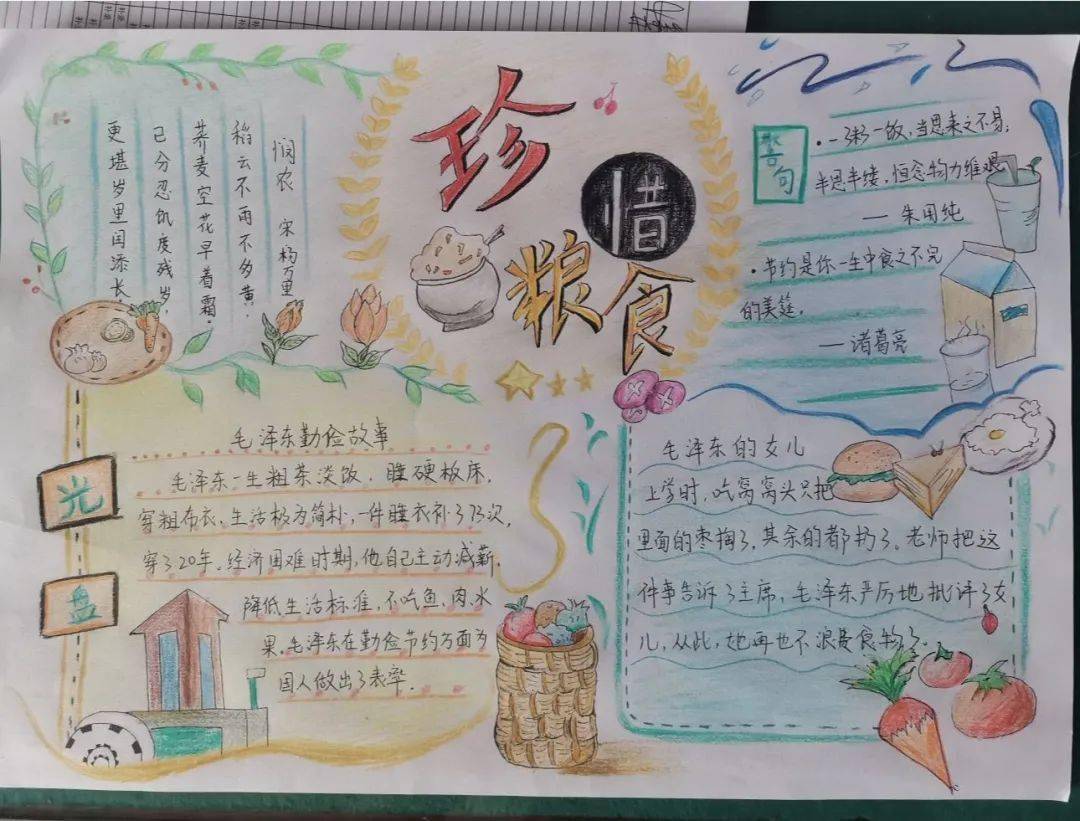 珍惜粮食
悯农 宋 杨万里
稻云不雨不多黄,
荞麦空花早着霜。
已分忍饥度残岁,
更堪岁里闰添长
警句
·一粥一饭,当思来之不易;
半思半缕,恒念物力维艰
— 朱用纯
·节约是你一生中食之不完
的美筵。
— 诸葛亮
光
盘
毛泽东勤俭故事
毛泽东一生粗茶淡饭、睡硬板床,
穿粗布衣、生活极为简朴,一件睡衣补了73次,
穿了20年。经济困难时期,他自己主动减薪、
降低生活标准,不吃鱼、肉、水
果。毛泽东在勤俭节约方面为
国人做出了表率.
毛泽东的女儿
上学时,吃窝窝头只把
里面的枣掏了,其余的都扔了。老师把这
件事告诉了主席,毛泽东严厉地批评了女
儿,从此,她再也不浪费食物了。